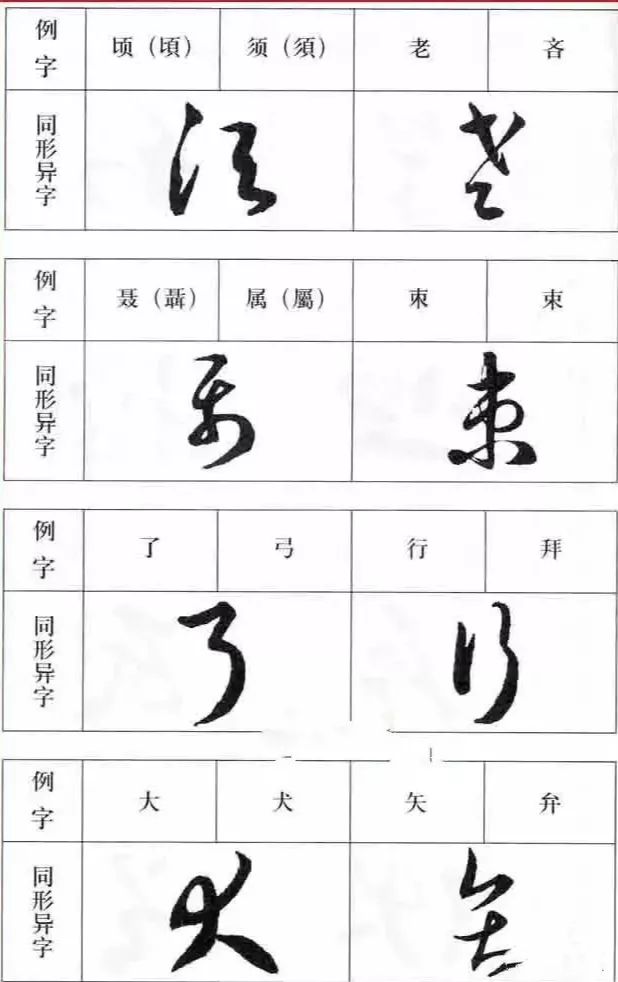 例字 顷（頃） 须（須） 老 吝
同形异字
例字 聂（聶） 属（屬） 朿 束
同形异字
例字 了 弓 行 拜
同形异字
例字 大 犬 矢 弁
同形异字